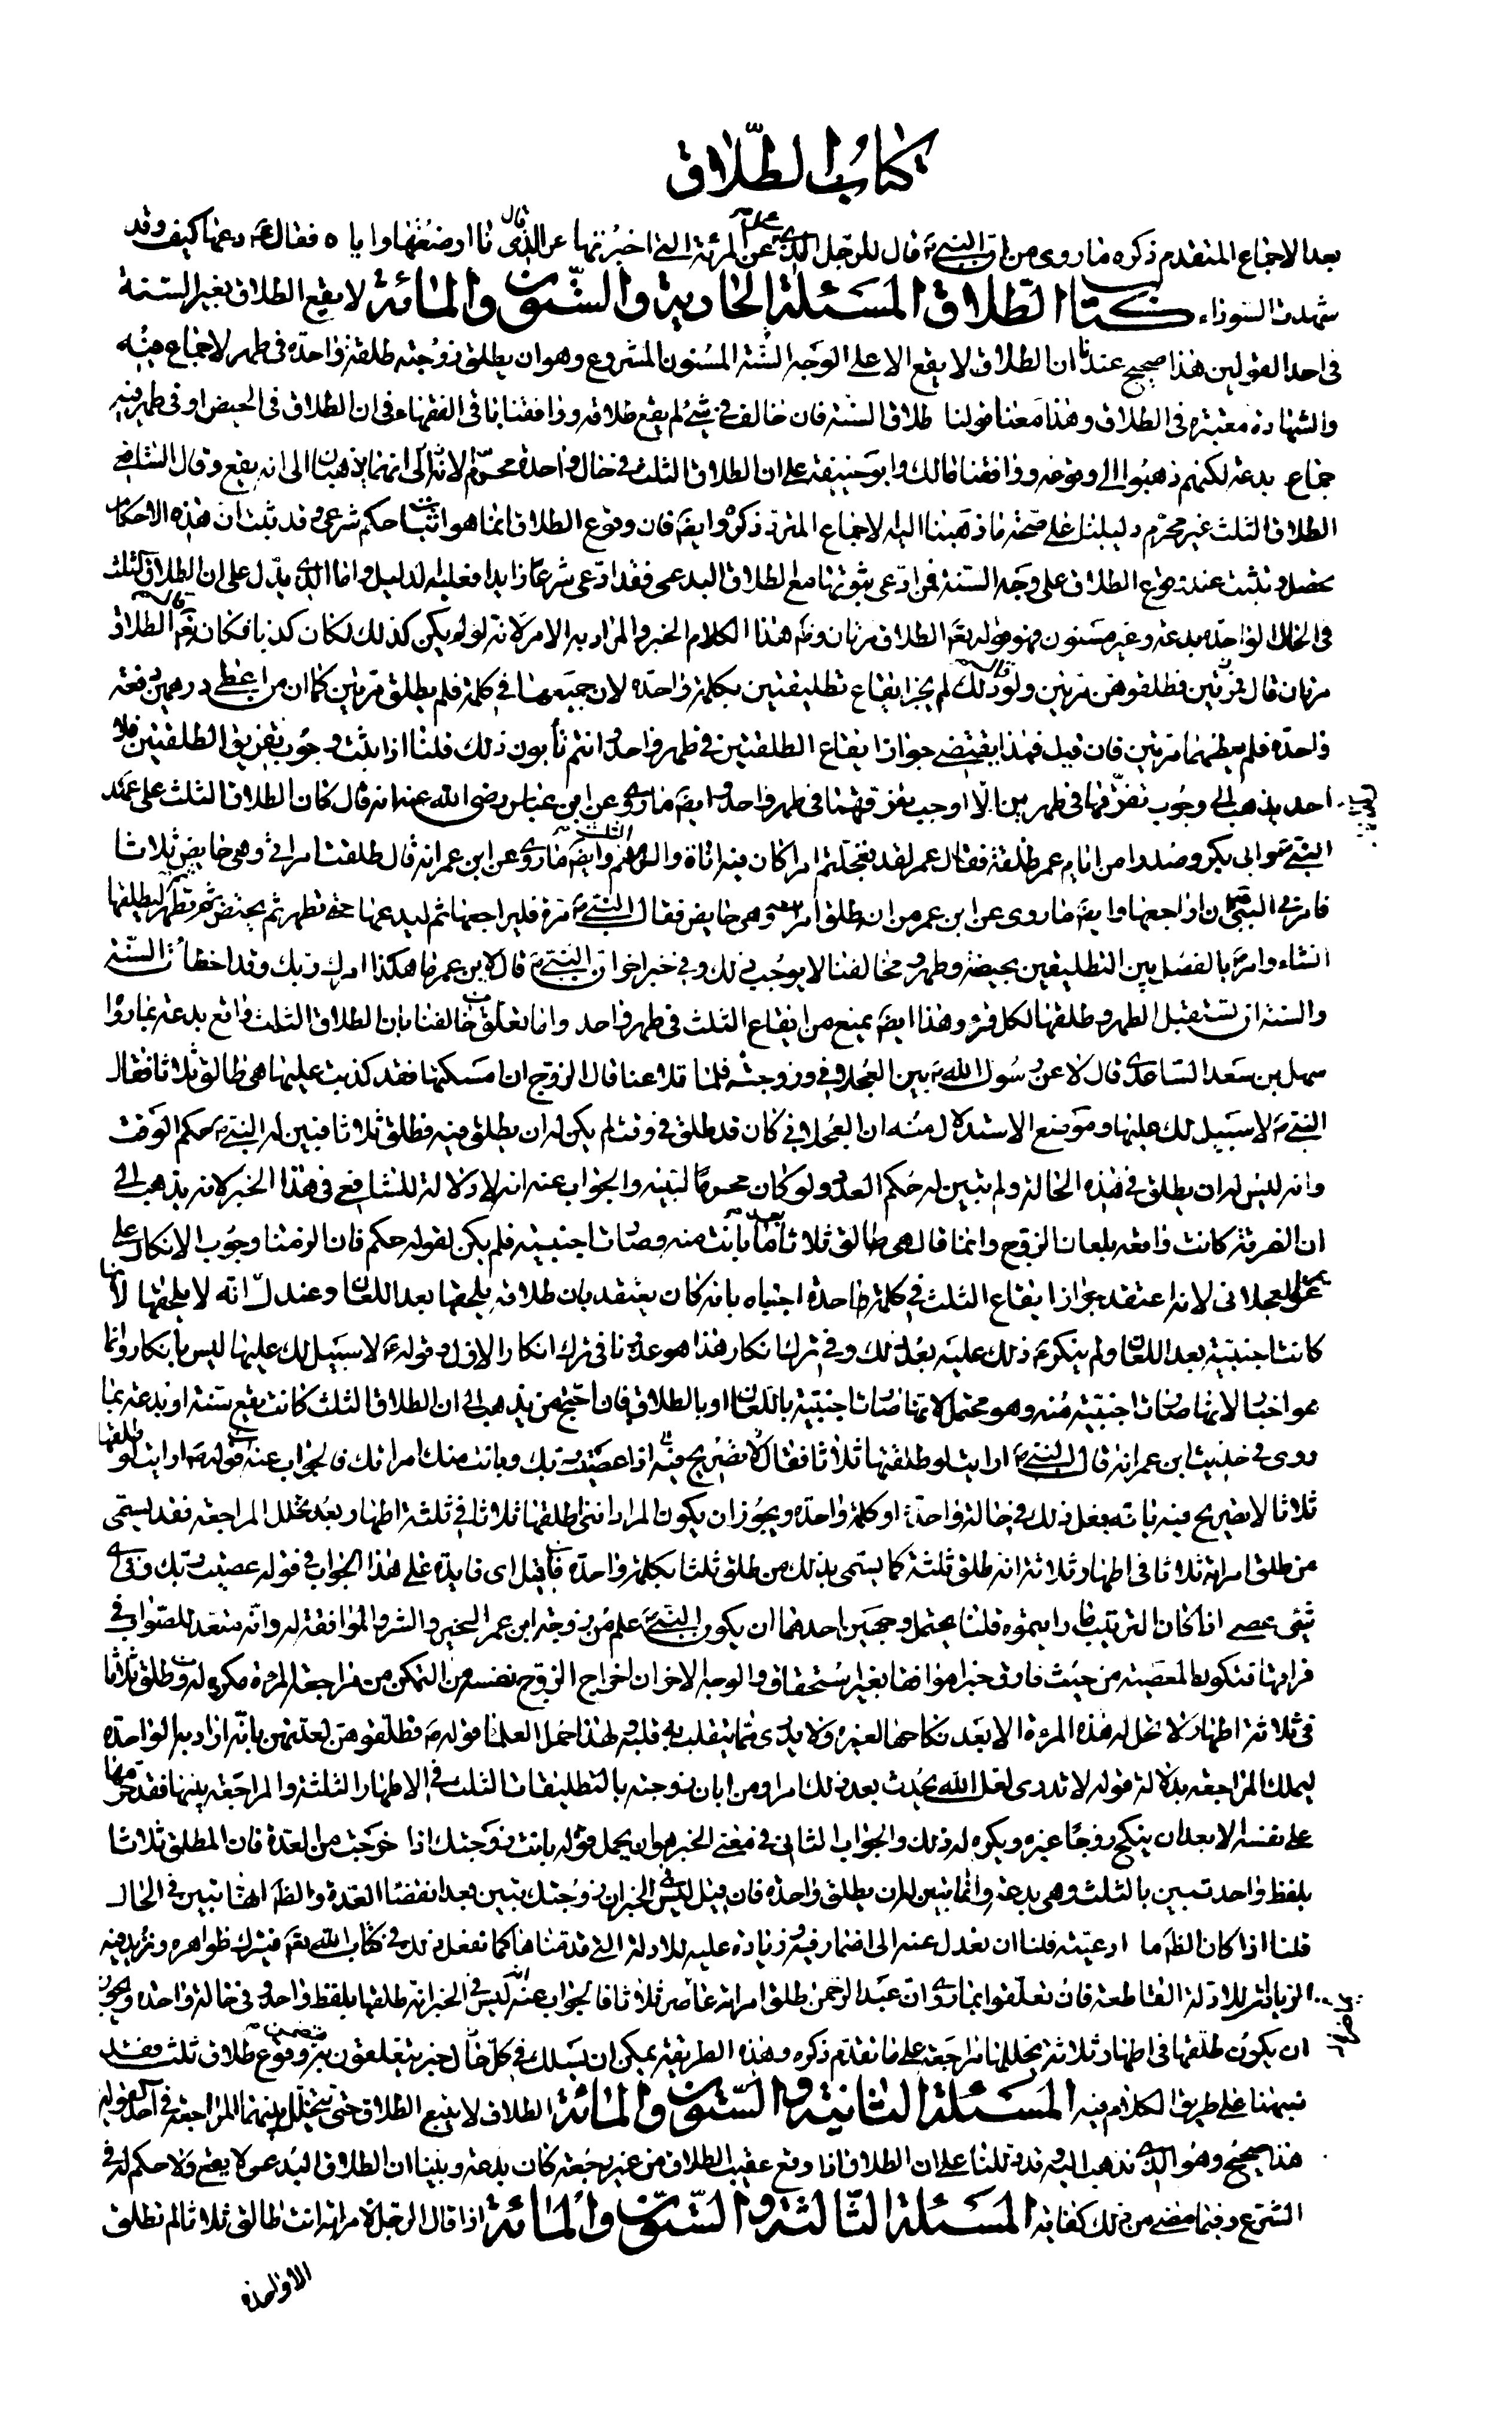 كتاب الطلاق
بعد الاجماع المتقدم ذكره ما روى من ان النبي قال للرجل الذي سئله عن المرئة التي اخبرتهما عن الذي قال نا ارضعتهما وا ياه فقال دعها كيف وقد
شهدت السوداء كتاب الطلاق المسئلة الحادية والستون والمائة لا يقع الطلاق بغير السنة
في احد القولين هذا صحيح عندنا ان الطلاق لا يقع الا على الوجه السنة المسنون المشروع وهو ان يطلق زوجته طلقة واحدة في طهر لا جماع فيه
والشهادة معتبرة في الطلاق وهذا معنا قولنا طلاق السنة فان خالف في شئ لم يقع طلاقه ووافقنا باقي الفقهاء في ان الطلاق في الحيض او في طهر فيه
جماع بدعة لكنهم ذهبوا الى وقوعه ووافقنا مالك وابو حنيفة على ان الطلاق الثلث في حال واحدة محرم الا انهما يذهبان الى انه يقع وقال الشافعي
الطلاق الثلث غير محرم دليلنا على صحة ما ذهبنا اليه الاجماع المتردد ذكره وايضا فان وقوع الطلاق انما هو اثبات حكم شرعي وقد ثبت ان هذه الاحكام
تحصل وتثبت عند وقوع الطلاق على وجه السنة فمن ادعى ثبوتها مع الطلاق البدعى فقد ادعى شرعا زايدا فعليه الدليل واما الذي يدل على ان الطلاق الثلث
في الحال الواحدة بدعة وغير مسنون فهو قوله تعالى الطلاق مرتان وظاهر هذا الكلام الخبر والمراد به الامر لانه لو لم يكن كذلك لكان كذبا فكان تعالى قال الطلاق
مرتان قال مرتين فطلقوهن مرتين ولو قال ذلك لم يجز ايقاع تطليقتين بكلمة واحدة لان جمعهما في كلمة فلم يطلق مرتين كما ان من اعطى درهمين دفعة
واحدة فلم يعطهما مرتين فان قيل فهذا يقتضي جواز ايقاع الطلقتين في طهر واحد وانتم تأبون ذلك قلنا اذا ثبت وجوب تفريق الطلقتين فلا
احد يذهب الى وجوب تفريقهما في طهرين الا اوجب تفريقهما في طهر واحد وايضا ما روى عن ابن عباس رضى الله عنه انه قال كان الطلاق الثلث على عهد
النبي وابى بكر وصدرا من ايام عمر طلقة فقال عمر لقد تعجلتم امرا كان فيه اناة والزمهم الثلث وايضا ما روى عن ابن عمر انه قال طلقت امراتي وهي حايض ثلاثا
فامرني النبي ان اراجعها وايضا ما روى عن ابن عمر من ان طلق امراته وهي حايض فقال النبي مره فليراجعها ثم ليدعها حتى تطهر ثم تحيض ثم تطهر ثم ليطلقها
انشاء وامره بالفصل بين التطليقتين بحيضة وطهر ومخالفنا لا يوجب ذلك وفي خبر اخر ان النبي قال لابن عمر ما هكذا امرك ربك وقد اخطأت السنة
والسنة ان تستقبل الطهر وطلقها لكل قرء وهذا ايضا يمنع من ايقاع الثلث في طهر واحد واما تعلق مخالفنا بان الطلاق الثلث واقع بدعة بما رواه
سهل بن سعد الساعدى قال لا عن رسول الله بين العجلاني وزوجته فلما تلاعنا قال الزوج ان امسكها فقد كذبت عليها هي طالق ثلاثا فقال
النبي لا سبيل لك عليها وموضع الاستدلال منه ان العجلاني كان قد طلق في وقت لم يكن له ان يطلق فيه فطلق ثلاثا فبين له النبي حكم الوقت
وانه ليس له ان يطلق في هذه الحالة ولم يبين له حكم العدد ولو كان محرما لبينه والجواب عنه انه لا دلالة للشافعي في هذا الخبر لانه يذهب الى
ان الفرقة كانت واقعة بلعان الزوج وانما قال هي طالق ثلاثا بعد ما بانت منه وصارت اجنبية فلم يكن لقوله حكم فان الزمنا وجوب الانكار على
العجلاني لانه اعتقد جواز ايقاع الثلث في كلمة واحدة اجبناه بانه كان يعتقد بان طلاقه يلحقها بعد اللعان وعندك انه لا يلحقها لانها
كانت اجنبية بعد اللعان ولم ينكر ذلك عليه بعد ذلك وفي ترك انكار هذا هو عذرنا في ترك انكار الاول وقوله لا سبيل لك عليها ليس بانكار وانما
هو اخبار لانها صارت اجنبية منه وهو محتمل لانها صارت اجنبية باللعان او بالطلاق فان احتج من يذهب الى ان الطلاق الثلث كانت يقع سنة او بدعة بما
روى في حديث ابن عمر انه قال للنبي ارايت لو طلقتها ثلاثا فقال اذا عصيت ربك وبانت منك امراتك فالجواب عنه قوله ارايت لو طلقها
ثلاثا لا تصريح فيه بانه يفعل ذلك في حالة واحدة او كلمة واحدة ويجوز ان يكون المراد انني طلقتها ثلاثا في ثلثة اطهار وبعد تخلل المراجعة فقد يسمى
من طلق امراته ثلاثا في اطهار ثلاثة انه طلق ثلثة كما يسمى بذلك من طلق ثلثا بكلمة واحدة فان قيل اى فايدة على هذا الجواب في قوله عصيت ربك وفي اى
شئ عصى اذا كان الترتيب قلنا يحتمل وجهين احدهما ان يكون النبي علم من زوجة ابن عمر الخير والشر والموافقة له وانه متعد للصواب في
فراقها فتكون المعصية من حيث فارق خيرا موافقا بغير استحقاق والوجه الاخر ان اخراج الزوج نفسه من التمكن من مراجعة المرءة مكروه له وطلق ثلاثا
في ثلاثة اطهار لا تحل له هذه المرءة الا بعد نكاحها لغيره ولا يدرى كما يتقلب به قلبه ولهذا حمل العلما قوله فطلقوهن لعدتهن بانه اراد به الواحدة
ليملك المراجعة بدلالة قوله لا تدرى لعل الله يحدث بعد ذلك امرا ومن ابان زوجته بالتطليقات الثلث في الاطهار الثلثة والمراجعة بينها فقد حرمها
على نفسه الا بعد ان ينكح زوجا غيره ويكره له ذلك والجواب الثاني في معنى الخبر هو ان يحمل قوله بانت زوجتك اذا خرجت من العدة فان المطلق ثلاثا
بلفظ واحد تبين بالثلث وهي بدعة وانما تبين لمن يطلق واحدة فان قيل ليس في الخبر ان زوجتك تبين بعد انقضا العدة والظاهر انها تبين في الحال
قلنا اذا كان الظاهر ما ادعيته فلنا ان نعدل عنه الى اضمار فيه وزيادة عليه للادلة التي قدمناها كما نفعل ذلك في كتاب الله تعالى فيترك ظواهره ونزيد فيه
الزيادة للادلة القاطعة فان تعلقوا بما روى ان عبد الرحمن طلق امراته تماضر ثلاثا فالجواب عنه انه ليس في الخبر انه طلقها بلفظ واحد وفي حالة واحدة ويجوز
ان يكون طلقها في اطهار ثلاثة تخللها مراجعة على ما تقدم ذكره وهذه الطريقة يمكن ان يسلك في كل خبر يتعلقون به يتضمن وقوع طلاق ثلث وقد
نبهنا على طريق الكلام فيه المسئلة الثانية والستون والمائة الطلاق لا يتبع الطلاق حتى تتخلل بينهما المراجعة في احد القولين
هذا صحيح وهو الذي نذهب اليه وقد دللنا على ان الطلاق اذا وقع عقيب الطلاق من غير رجعة كان بدعة وبينا ان الطلاق البدعى لا يقع ولا حكم له في
الشرع وفيما مضى من ذلك كفاية المسئلة الثالثة والستون والمائة اذا قال الرجل لامراته انت طالق ثلاثا لم تطلق
الا واحدة